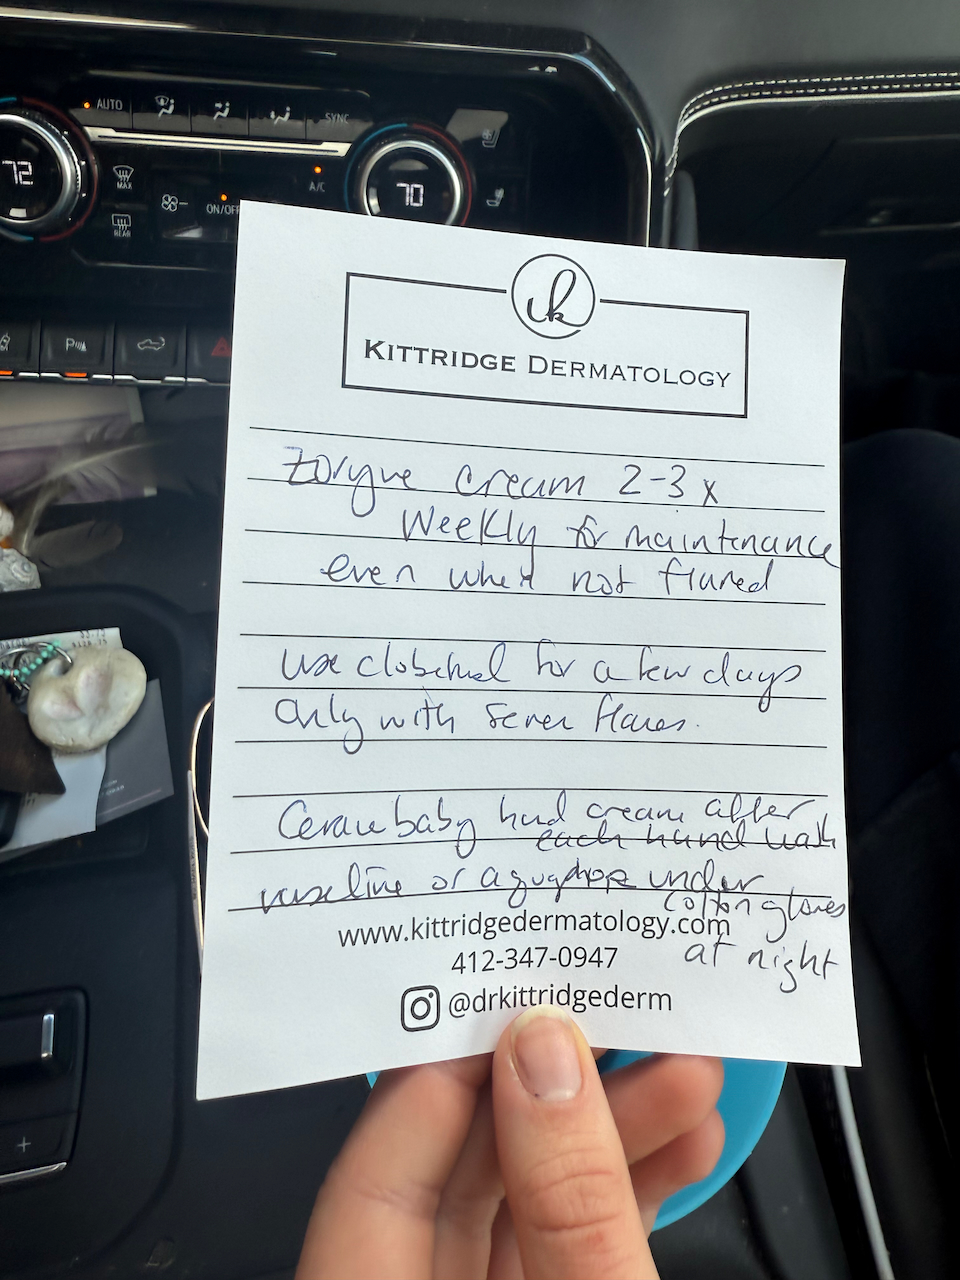 AUTO
SYNC
72
MAX
REAR
ON/OFF
A/C
70
P
k
KITTRIDGE DERMATOLOGY
Zoryve cream 2-3 x
Weekly for maintenance
even when not flared
use clobetasol for a few days
Only with severe flares.
Cerave baby hand cream after
each hand wash
vaseline or aquaphor under
cotton gloves
at night
www.kittridgedermatology.com
412-347-0947
@drkittridgederm
+